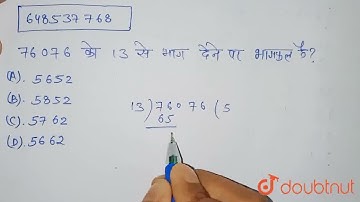 648537768
76076 को 13 से भाग देने पर भागफल है?
(A). 5652
(B). 5852
(C). 5762
(D). 5662
13) 76076 ( 5
65
doubtnut